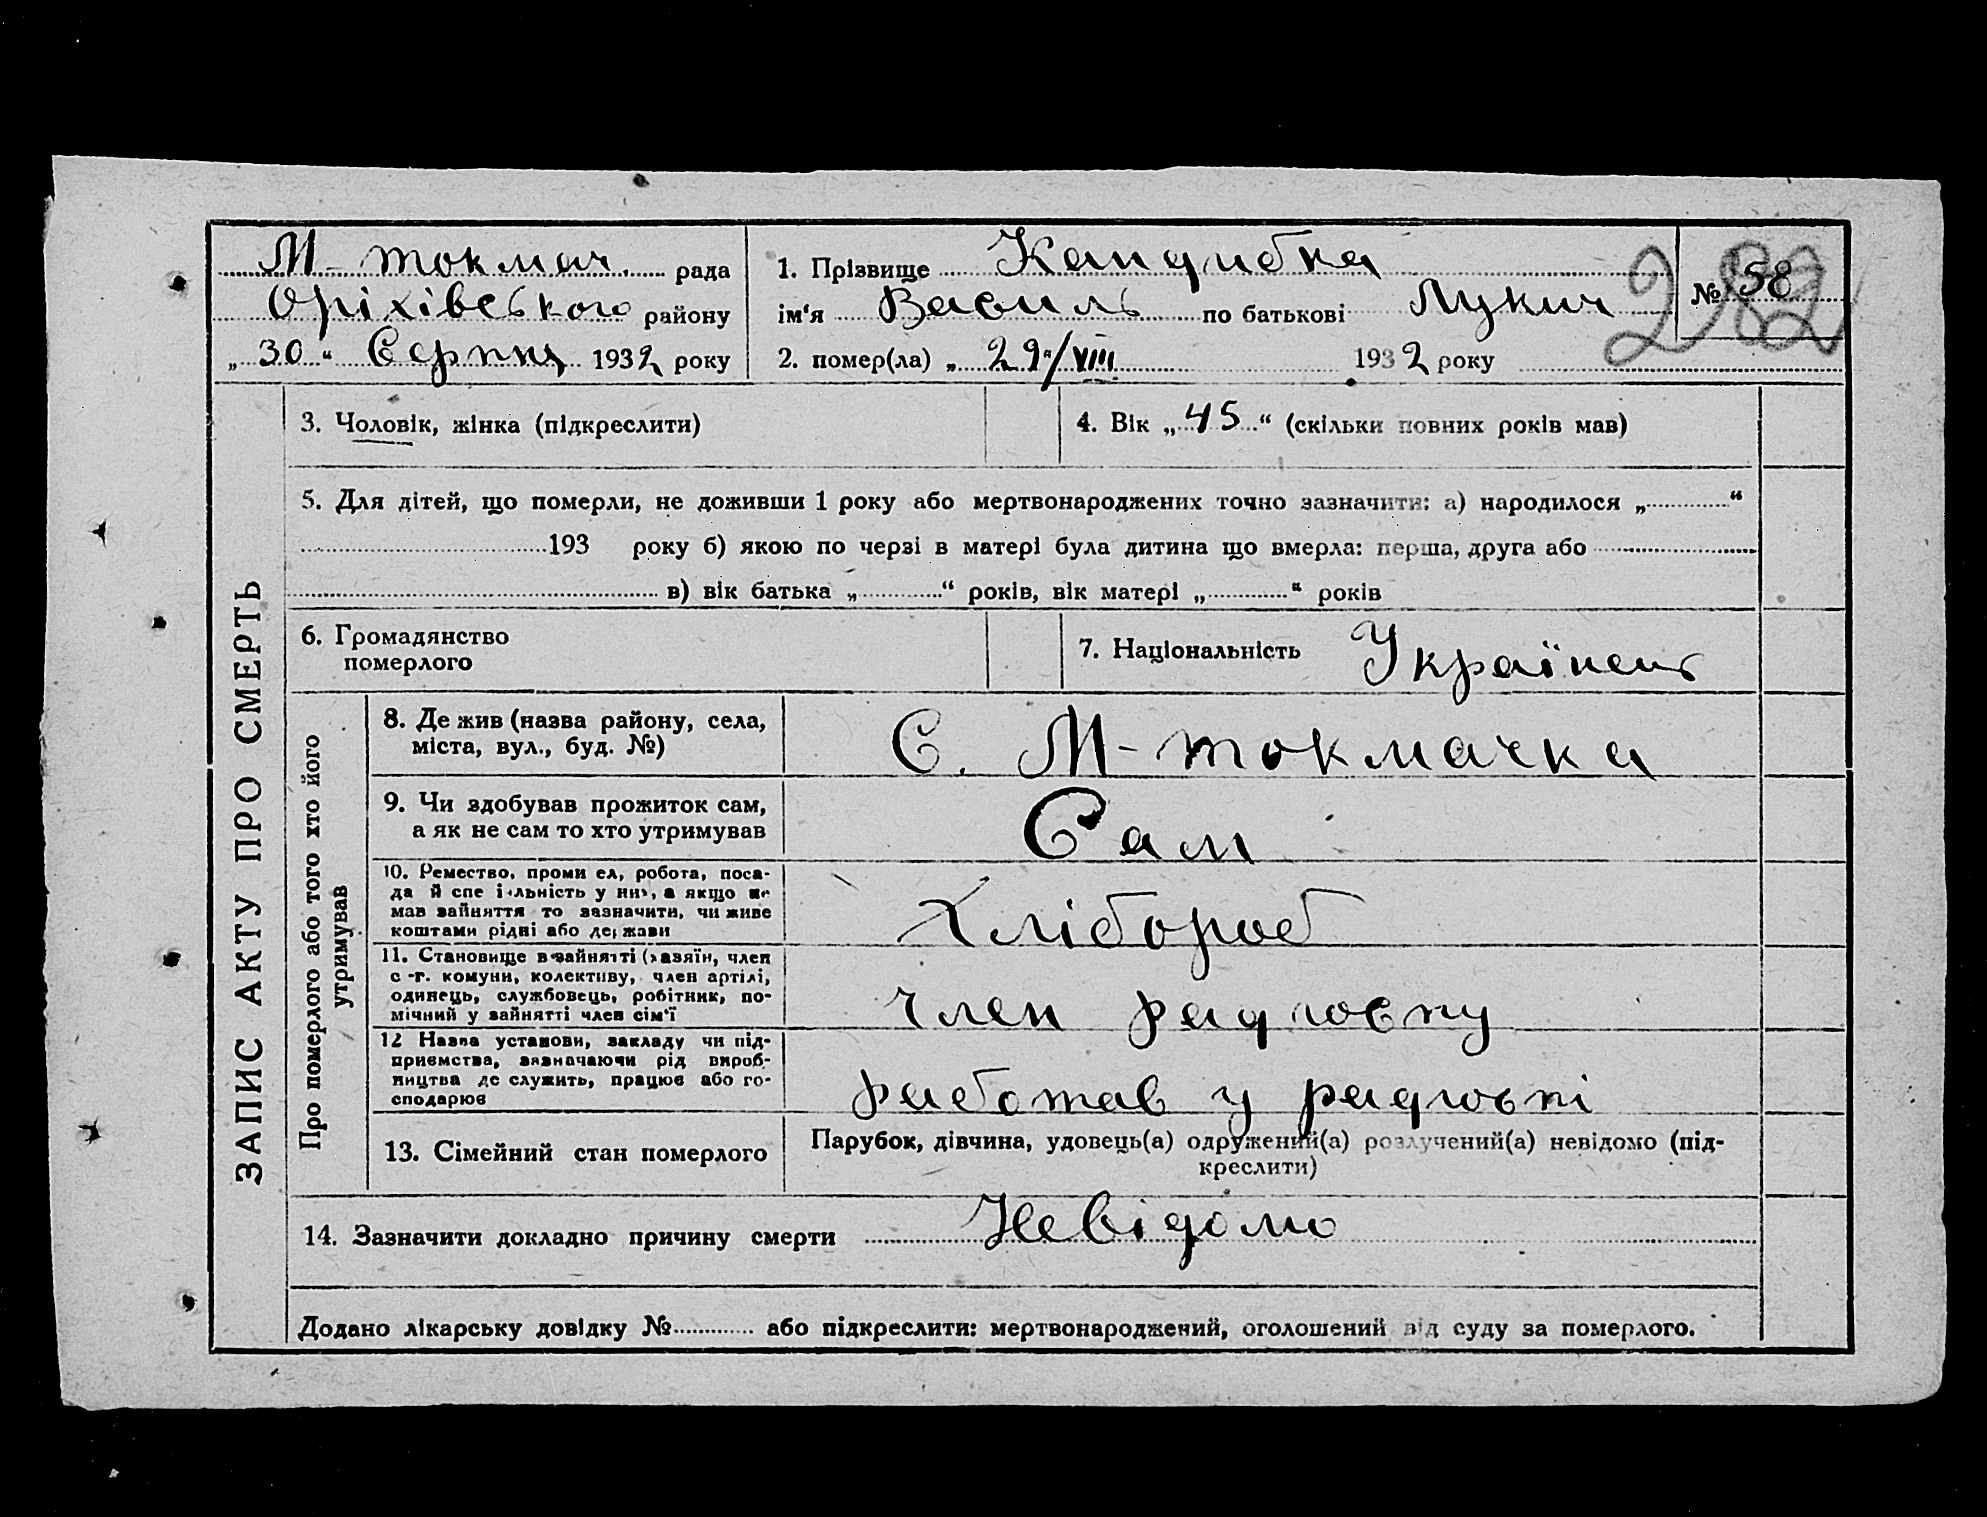 М-токмач. рада
Оріхівського району
„30“ Серпня 1932 року
1. Прізвище Кандибка
ім‘я Василь по батькові Лукич
2. помер(ла) „29“/VIII 1932 року
№ 58
282
ЗАПИС АКТУ ПРО СМЕРТЬ
3. Чоловік, жінка (підкреслити)
4. Вік „45“ (скільки повних років мав)
5. Для дітей, що померли, не доживши 1 року або мертвонароджених точно зазначити: а) народилося „ “
193 року б) якою по черзі в матері була дитина що вмерла: перша, друга або
в) вік батька „ “ років, вік матері „ “ років
6. Громадянство
померлого
7. Національність Українець
Про померлого або того хто його
утримував
8. Де жив (назва району, села,
міста, вул., буд. №)
С. М-токмачка
9. Чи здобував прожиток сам,
а як не сам то хто утримував
Сам
10. Ремество, проми ел, робота, поса-
да й спе і льність у ни, а якщо не
мав зайняття то зазначити, чи живе
коштами рідні або держави
Хлібороб
11. Становище в зайнятті (хазяїн, член
с-г. комуни, колективу, член артілі,
одинець, службовець, робітник, по-
мічний у зайнятті член сім‘ї
член радгоспу
12 Назва установи, закладу чи під-
приємства, зазначаючи рід вироб-
ництва де служить, працює або го-
сподарює
работав у радгоспі
13. Сімейний стан померлого
Парубок, дівчина, удовець(а) одружений(а) розлучений(а) невідомо (під-
креслити)
14. Зазначити докладно причину смерти Невідомо
Додано лікарську довідку № або підкреслити: мертвонароджений, оголошений від суду за померлого.